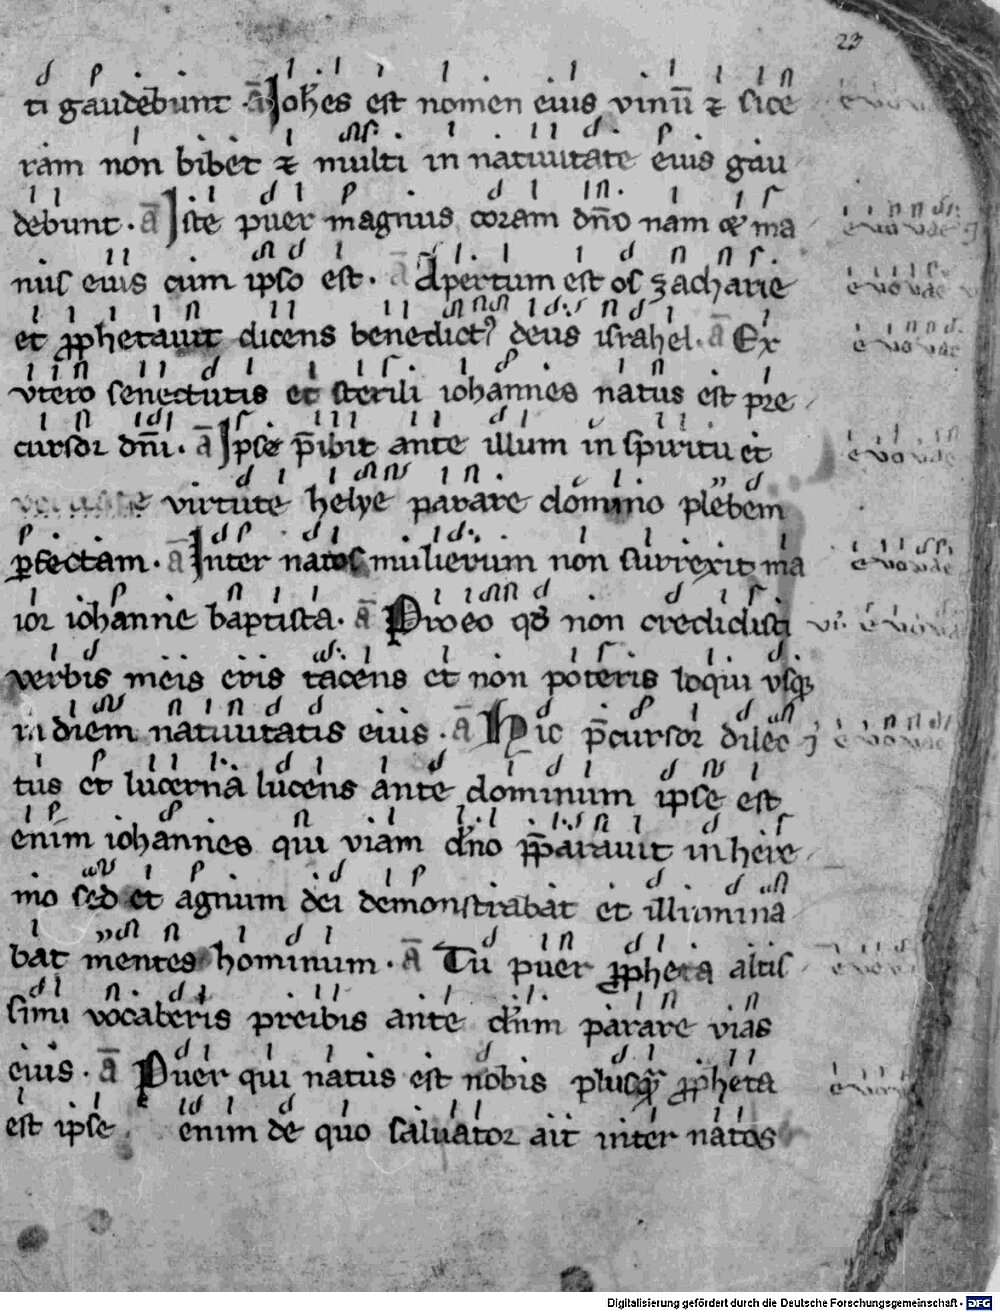 23
ti gaudebunt · ā Joh̄es est nomen eius vinū ⁊ sice
ram non bibet ⁊ multi in natiuitate eius gau
debunt · ā Iste puer magnus coram dn̄o nam & ma
nus eius cum ipso est · ā Apertum est os zacharie
et ꝓphetauit dicens benedictꝰ deus israhel · ā Ex
vtero senectutis et sterili iohannes natus est pre
cursor dn̄i · ā Ipse p̄ibit ante illum in spiritu et
virtute helye parare domino plebem
ꝑfectam · ā Inter natos mulierum non surrexit ma
ior iohanne baptista · ā Pro eo qđ non credidisti
verbis meis eris tacens et non poteris loqui vsqꝫ
in diem natiuitatis eius · ā Hic p̄cursor dilec
tus et lucerna lucens ante dominum ipse est
enim iohannes qui viam dn̄o p̄parauit in here
mo sed et agnum dei demonstrabat et illumina
bat mentes hominum · ā Tu puer ꝓpheta altis
simi vocaberis preibis ante dn̄m parare vias
eius · ā Puer qui natus est nobis plusqͣ ꝓpheta
est ipse enim de quo saluator ait inter natos
Digitalisierung gefördert durch die Deutsche Forschungsgemeinschaft - DFG